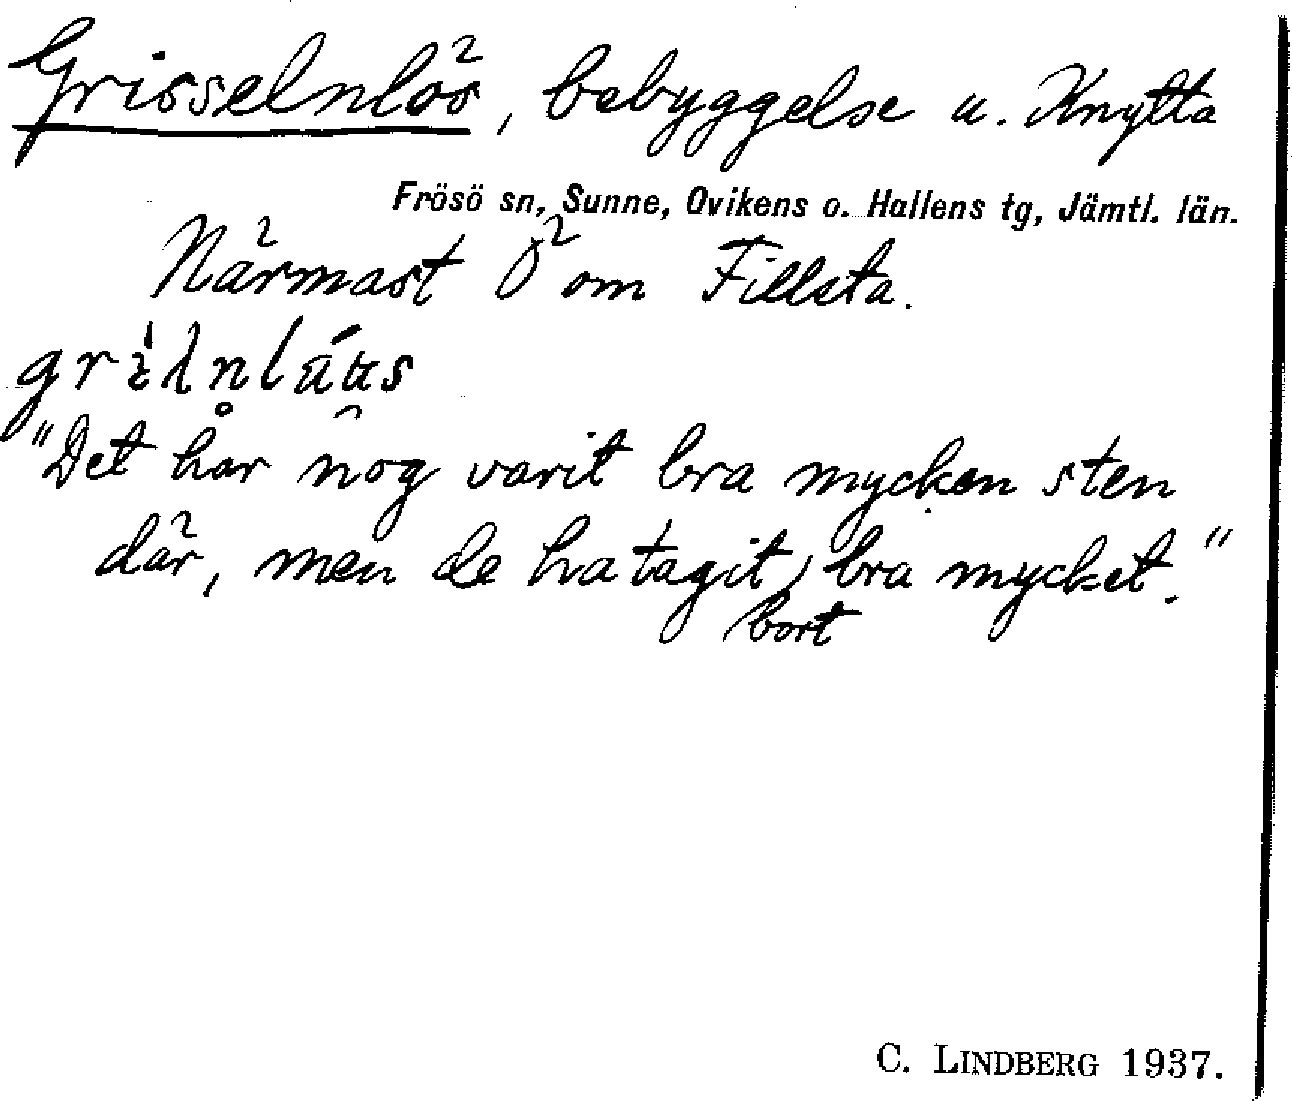 Grisselnlös, bebyggelse u. Knytta
Frösö sn, Sunne, Ovikens o. Hallens tg, Jämtl. län.
Närmast Ö om Fillsta.
"Det har nog varit bra mycken sten
där, men de ha tagit bort bra mycket."
C. LINDBERG 1937.